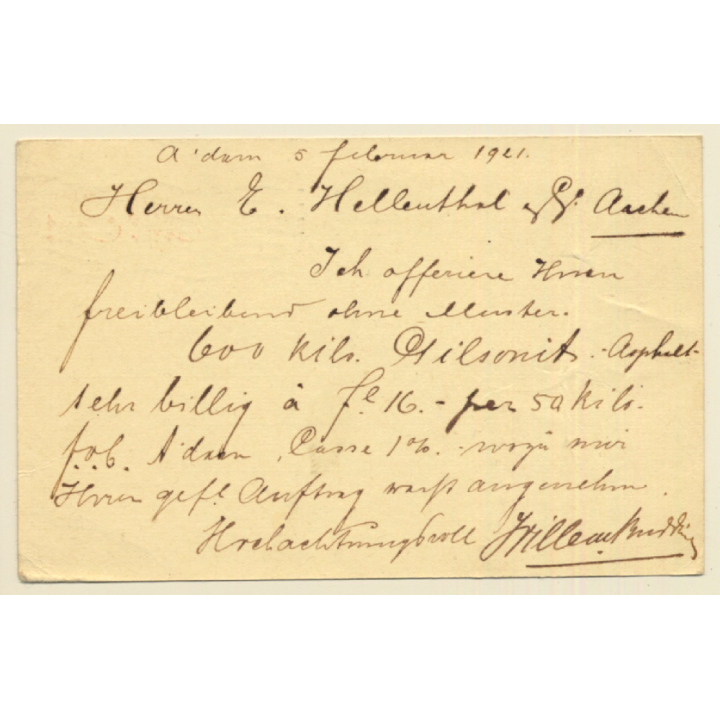 A'dam 5 februar 1921.
Herren E. Hellenthal & Co. Aachen
Ich offeriere Ihnen
freibleibend ohne Muster.
600 Kilo. Gilsonit - Asphalt -
sehr billig à fl 16. - per 50 Kilo.
f.o.b. A'dam, Casse 1%. - wozu mir
Ihren gefl. Auftrag angenehm.
Hochachtungsvoll Willem Budding